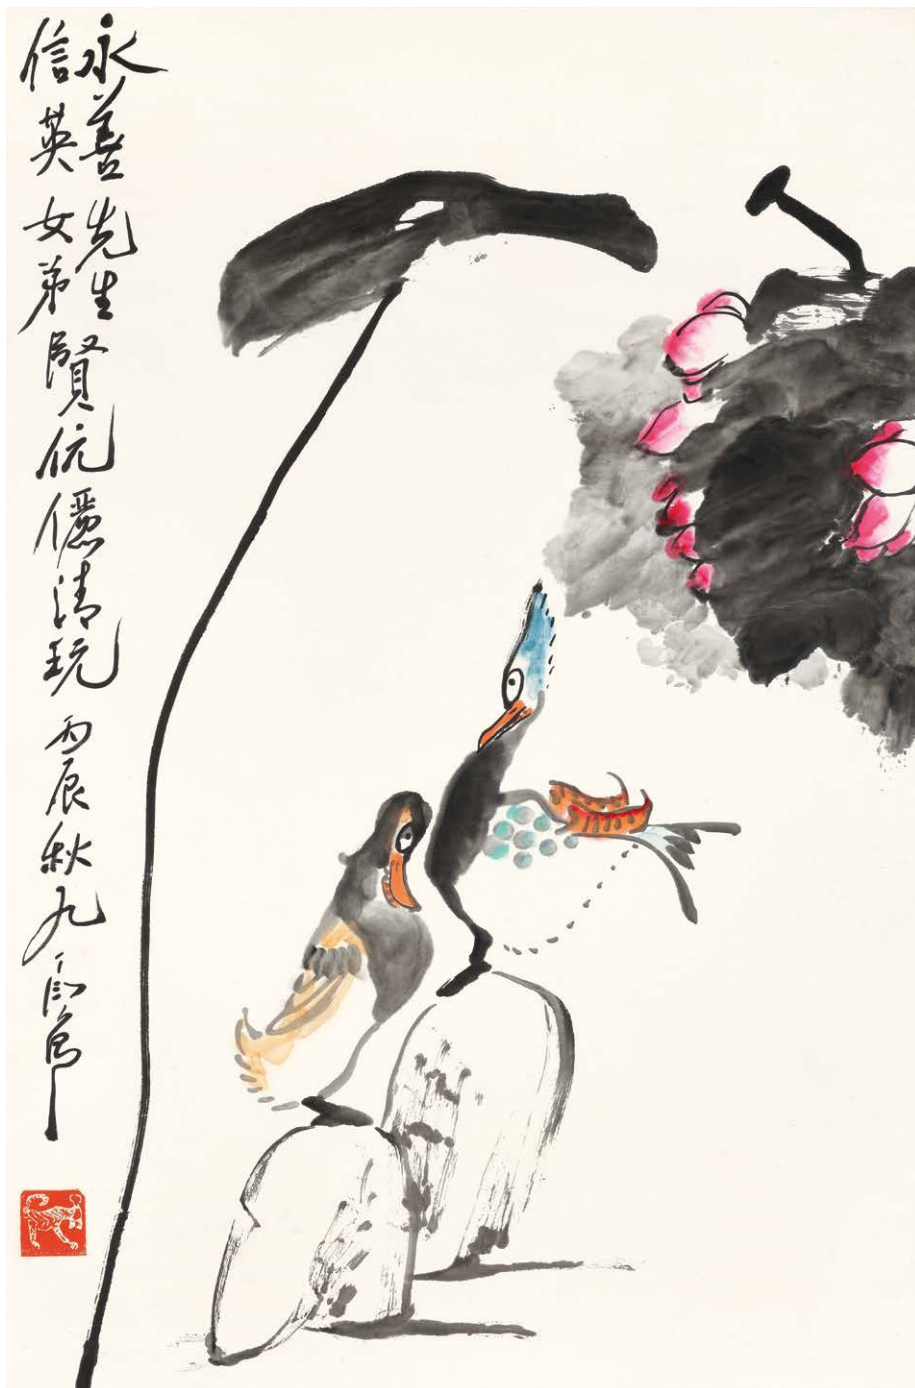 永善先生
信英女弟賢伉儷清玩 丙辰秋九 丁衍庸